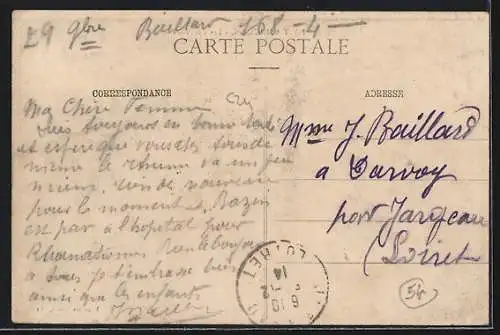 29 9bre Baillard 168 - 4 -
CARTE POSTALE
CORRESPONDANCE
ADRESSE
Ma Chère Femme
suis toujours en bonne santé
et espérant que vous êtes tous de
même le rhume va un peu
mieux, rien de nouveau
pour le moment, Bazin
est parti à l'hôpital pour
Rhumatismes
à tous je t'embrasse bien
ainsi que les enfants
Mme J. Baillard
à Darvoy
par Jargeau
(Loiret)
LOIRET
14
58